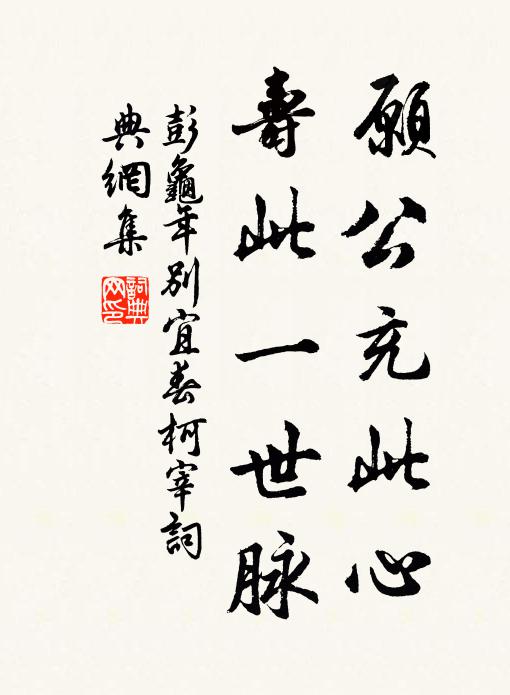 願公充此心
壽此一世脉
彭龜年別宜春柯宰詞
典網集
詞典
网印